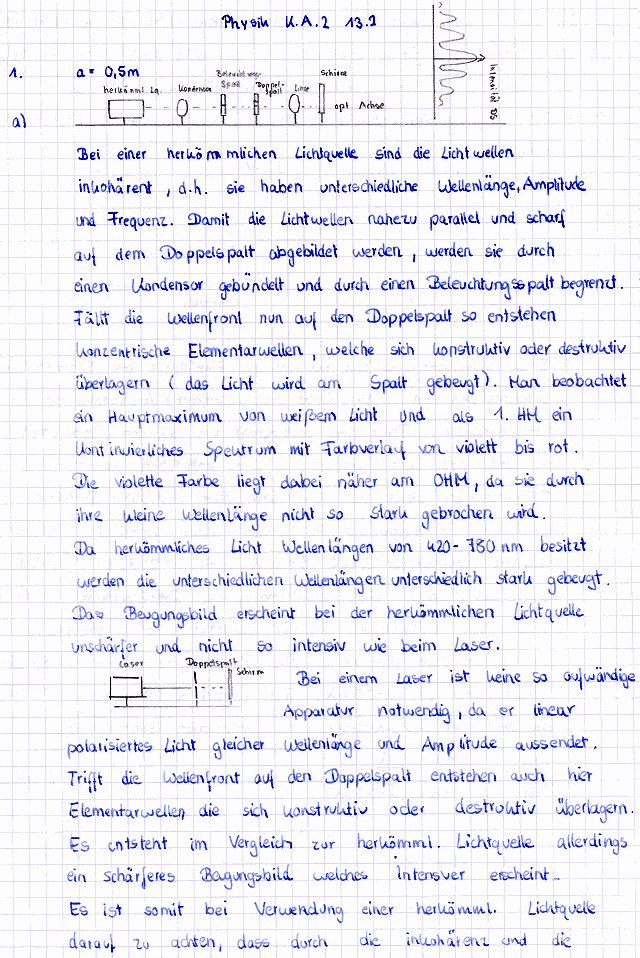 Physik K.A.2 13.1
1. a = 0,5m
Beleuchtungs-
Schirm
herkömml. Lq. Kondensor Spalt Doppel-
spalt Linse
opt Achse
Intensität
a)
Bei einer herkömmlichen Lichtquelle sind die Lichtwellen
inkohärent, d.h. sie haben unterschiedliche Wellenlänge, Amplitude
und Frequenz. Damit die Lichtwellen nahezu parallel und scharf
auf dem Doppelspalt abgebildet werden, werden sie durch
einen Kondensor gebündelt und durch einen Beleuchtungsspalt begrenzt.
Fällt die Wellenfront nun auf den Doppelspalt so entstehen
konzentrische Elementarwellen, welche sich konstruktiv oder destruktiv
überlagern (das Licht wird am Spalt gebeugt). Man beobachtet
ein Hauptmaximum von weißem Licht und als 1. HM ein
kontinuierliches Spektrum mit Farbverlauf von violett bis rot.
Die violette Farbe liegt dabei näher am OHM, da sie durch
ihre kleine Wellenlänge nicht so stark gebrochen wird.
Da herkömmliches Licht Wellenlängen von 420-780 nm besitzt
werden die unterschiedlichen Wellenlängen unterschiedlich stark gebeugt.
Das Beugungsbild erscheint bei der herkömmlichen Lichtquelle
unschärfer und nicht so intensiv wie beim Laser.
Laser Doppelspalt
Schirm
Bei einem Laser ist keine so aufwändige
Apparatur notwendig, da er linear
polarisiertes Licht gleicher Wellenlänge und Amplitude aussendet.
Trifft die Wellenfront auf den Doppelspalt entstehen auch hier
Elementarwellen, die sich konstruktiv oder destruktiv überlagern.
Es entsteht im Vergleich zur herkömml. Lichtquelle allerdings
ein schärferes Beugungsbild welches intensiver erscheint.
Es ist somit bei Verwendung einer herkömml. Lichtquelle
darauf zu achten, dass durch die inkohärenz und die